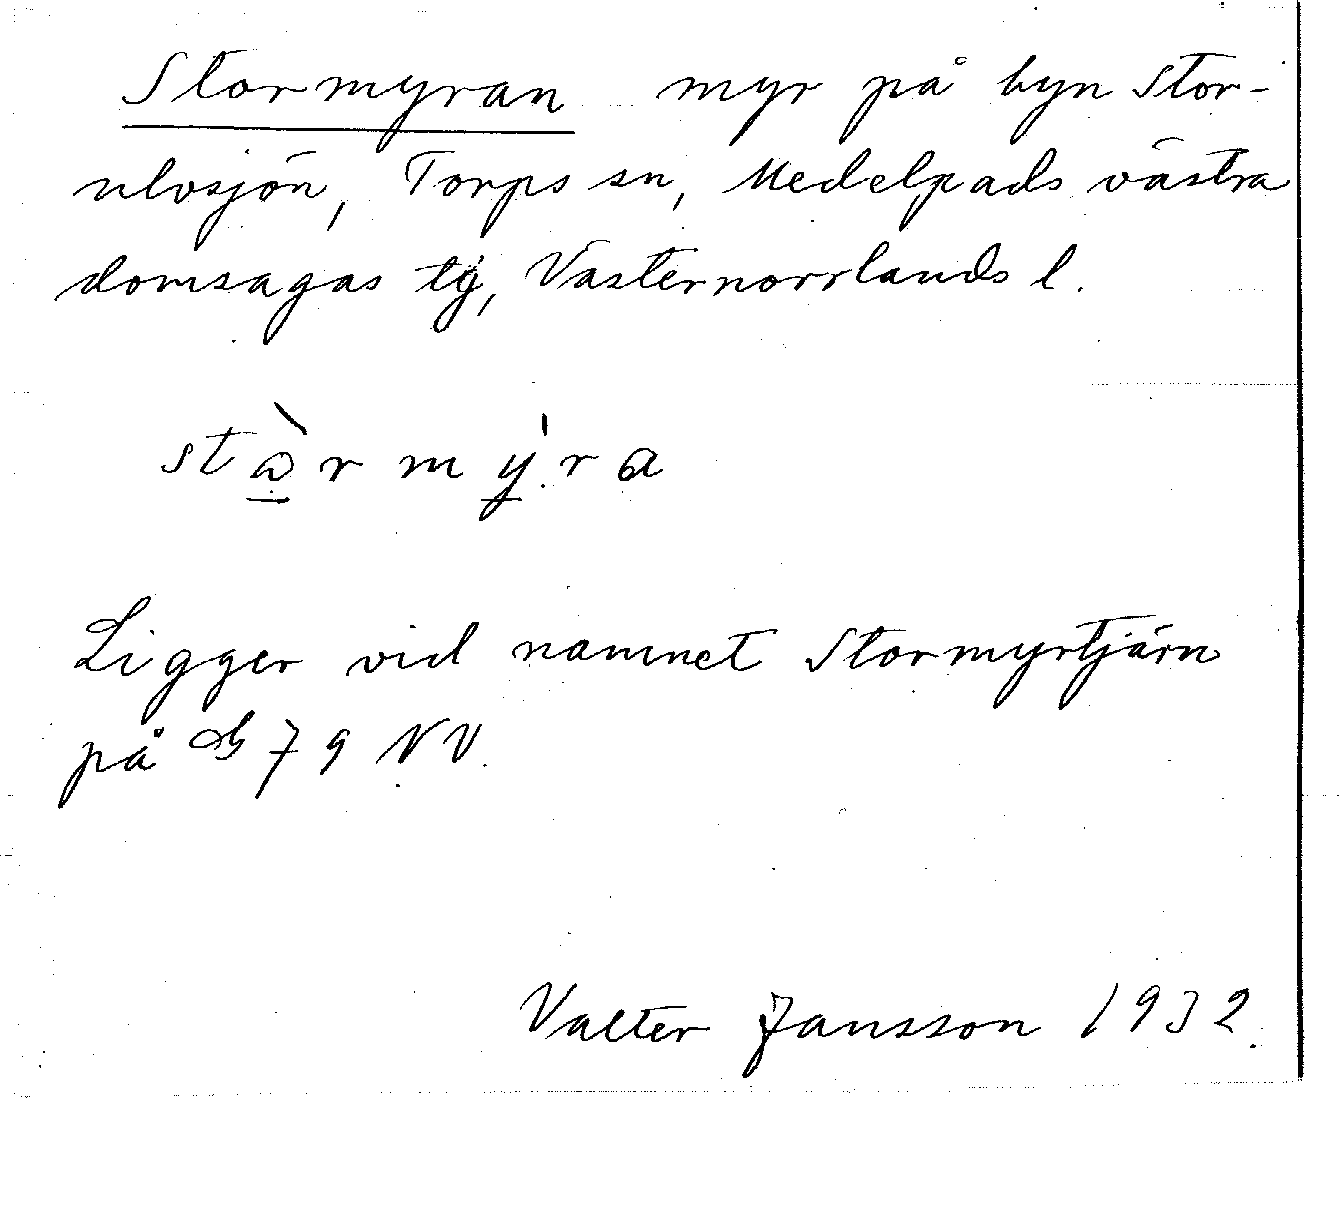 Stormyran myr på byn Stor-
ulvsjön, Torps sn, Medelpads västra
domsagas tg, Västernorrlands l.
stɷ̀rmy̍ra
Ligger vid namnet Stormyrtjärn
på 79 NV.
Valter Jansson 1932.